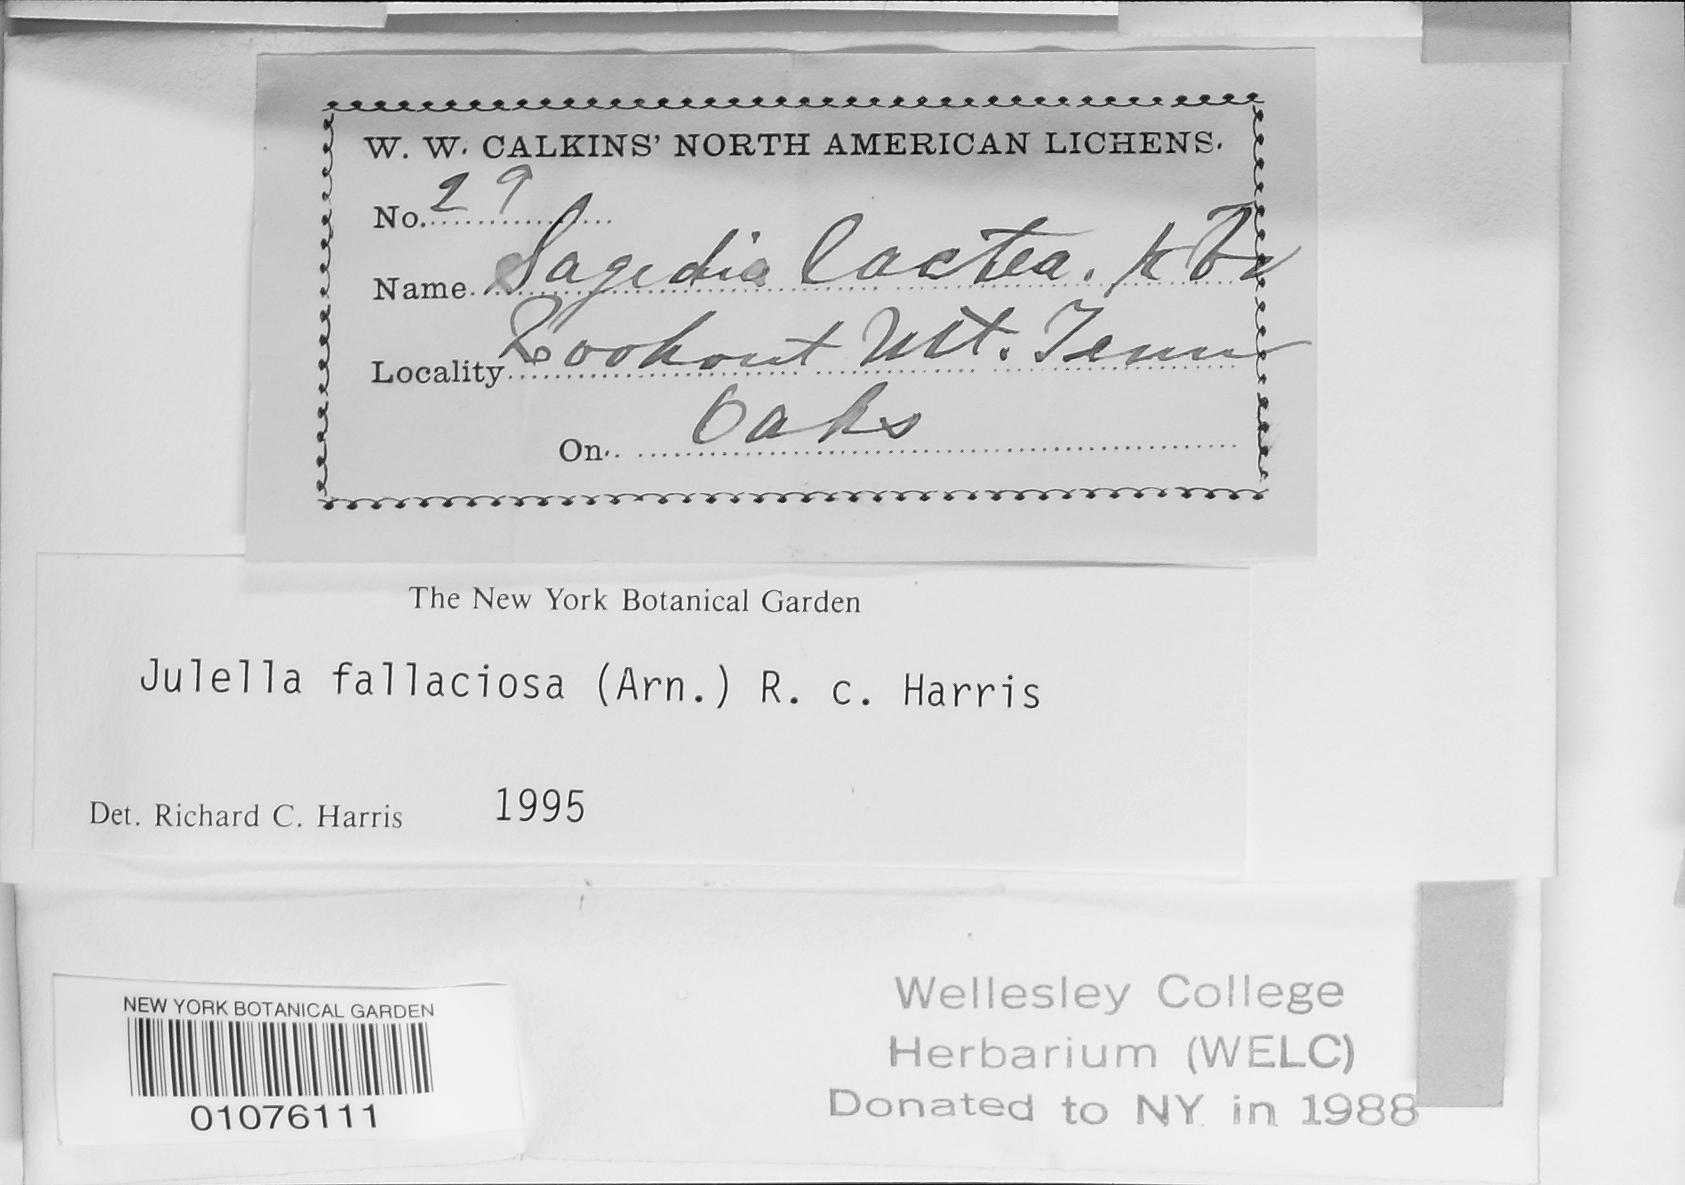 W. W. CALKINS' NORTH AMERICAN LICHENS.
No. 29
Name Sagedia lactea. Kbr
Locality Lookout Mt. Tenn
On Oaks
The New York Botanical Garden
Julella fallaciosa (Arn.) R. c. Harris
Det. Richard C. Harris 1995
NEW YORK BOTANICAL GARDEN
01076111
Wellesley College
Herbarium (WELC)
Donated to NY in 1988